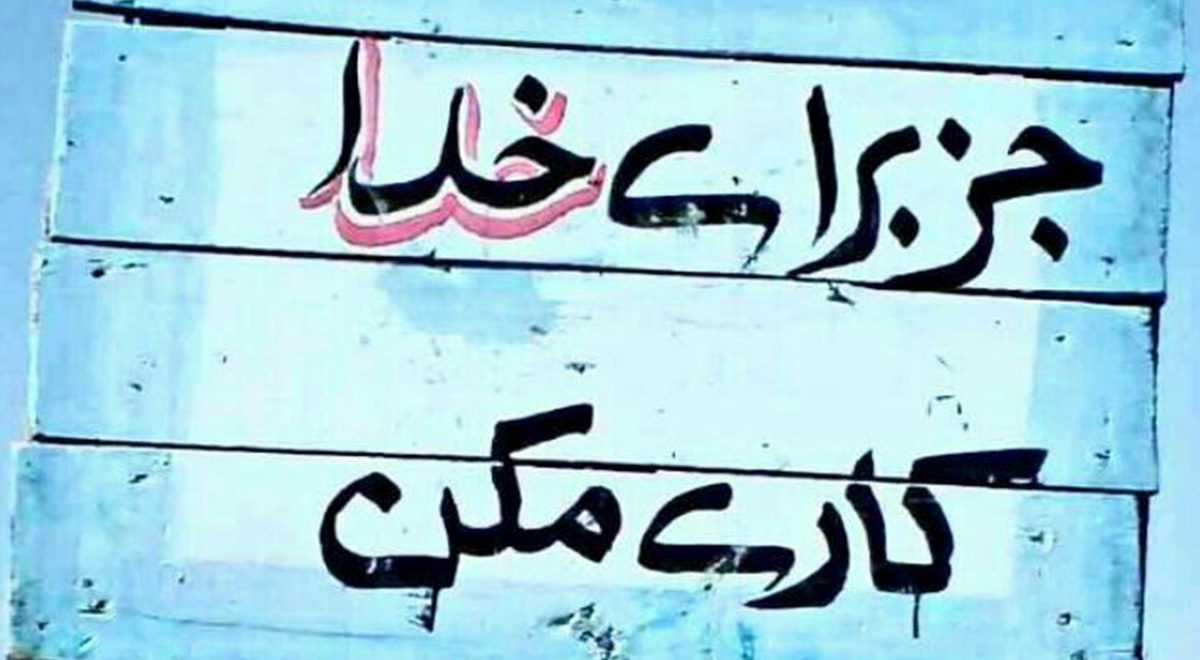 جز برای خدا
کاری مکن